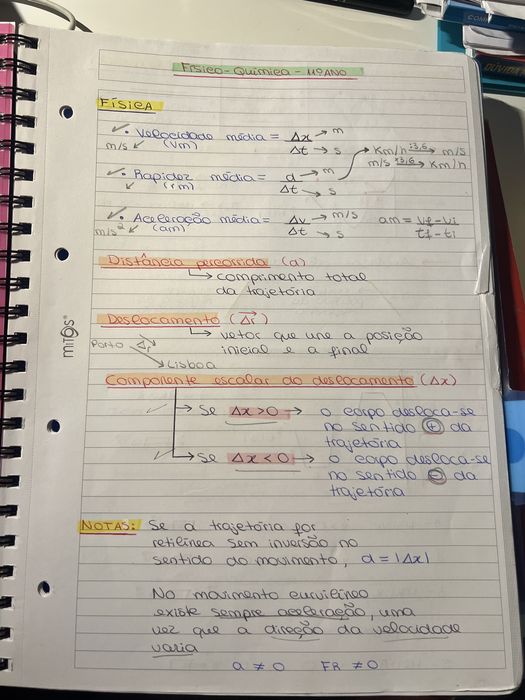 Físico-Química - 11º ANO
FÍSICA
• Velocidade média = Δx → m
m/s ↙ (vm) Δt → s
Km/h :3,6→ m/s
m/s x3,6→ Km/h
• Rapidez média = d → m
↙ (rm) Δt → s
• Aceleração média = Δv → m/s am = vf-vi
m/s² ↙ (am) Δt → s tf-ti
Distância percorrida (d)
↳ comprimento total
da trajetória
Deslocamento (Δr)
↳ vetor que une a posição
inicial e a final
Porto Δr
Lisboa
Componente escalar do deslocamento (Δx)
→ Se Δx>0 → o corpo desloca-se
no sentido + da
trajetória
→ Se Δx<0 → o corpo desloca-se
no sentido - da
trajetória
NOTAS: Se a trajetória for
retilínea sem inversão no
sentido do movimento, d = |Δx|
No movimento curvilíneo
existe sempre aceleração, uma
vez que a direção da velocidade
varia
a ≠ 0 FR ≠ 0